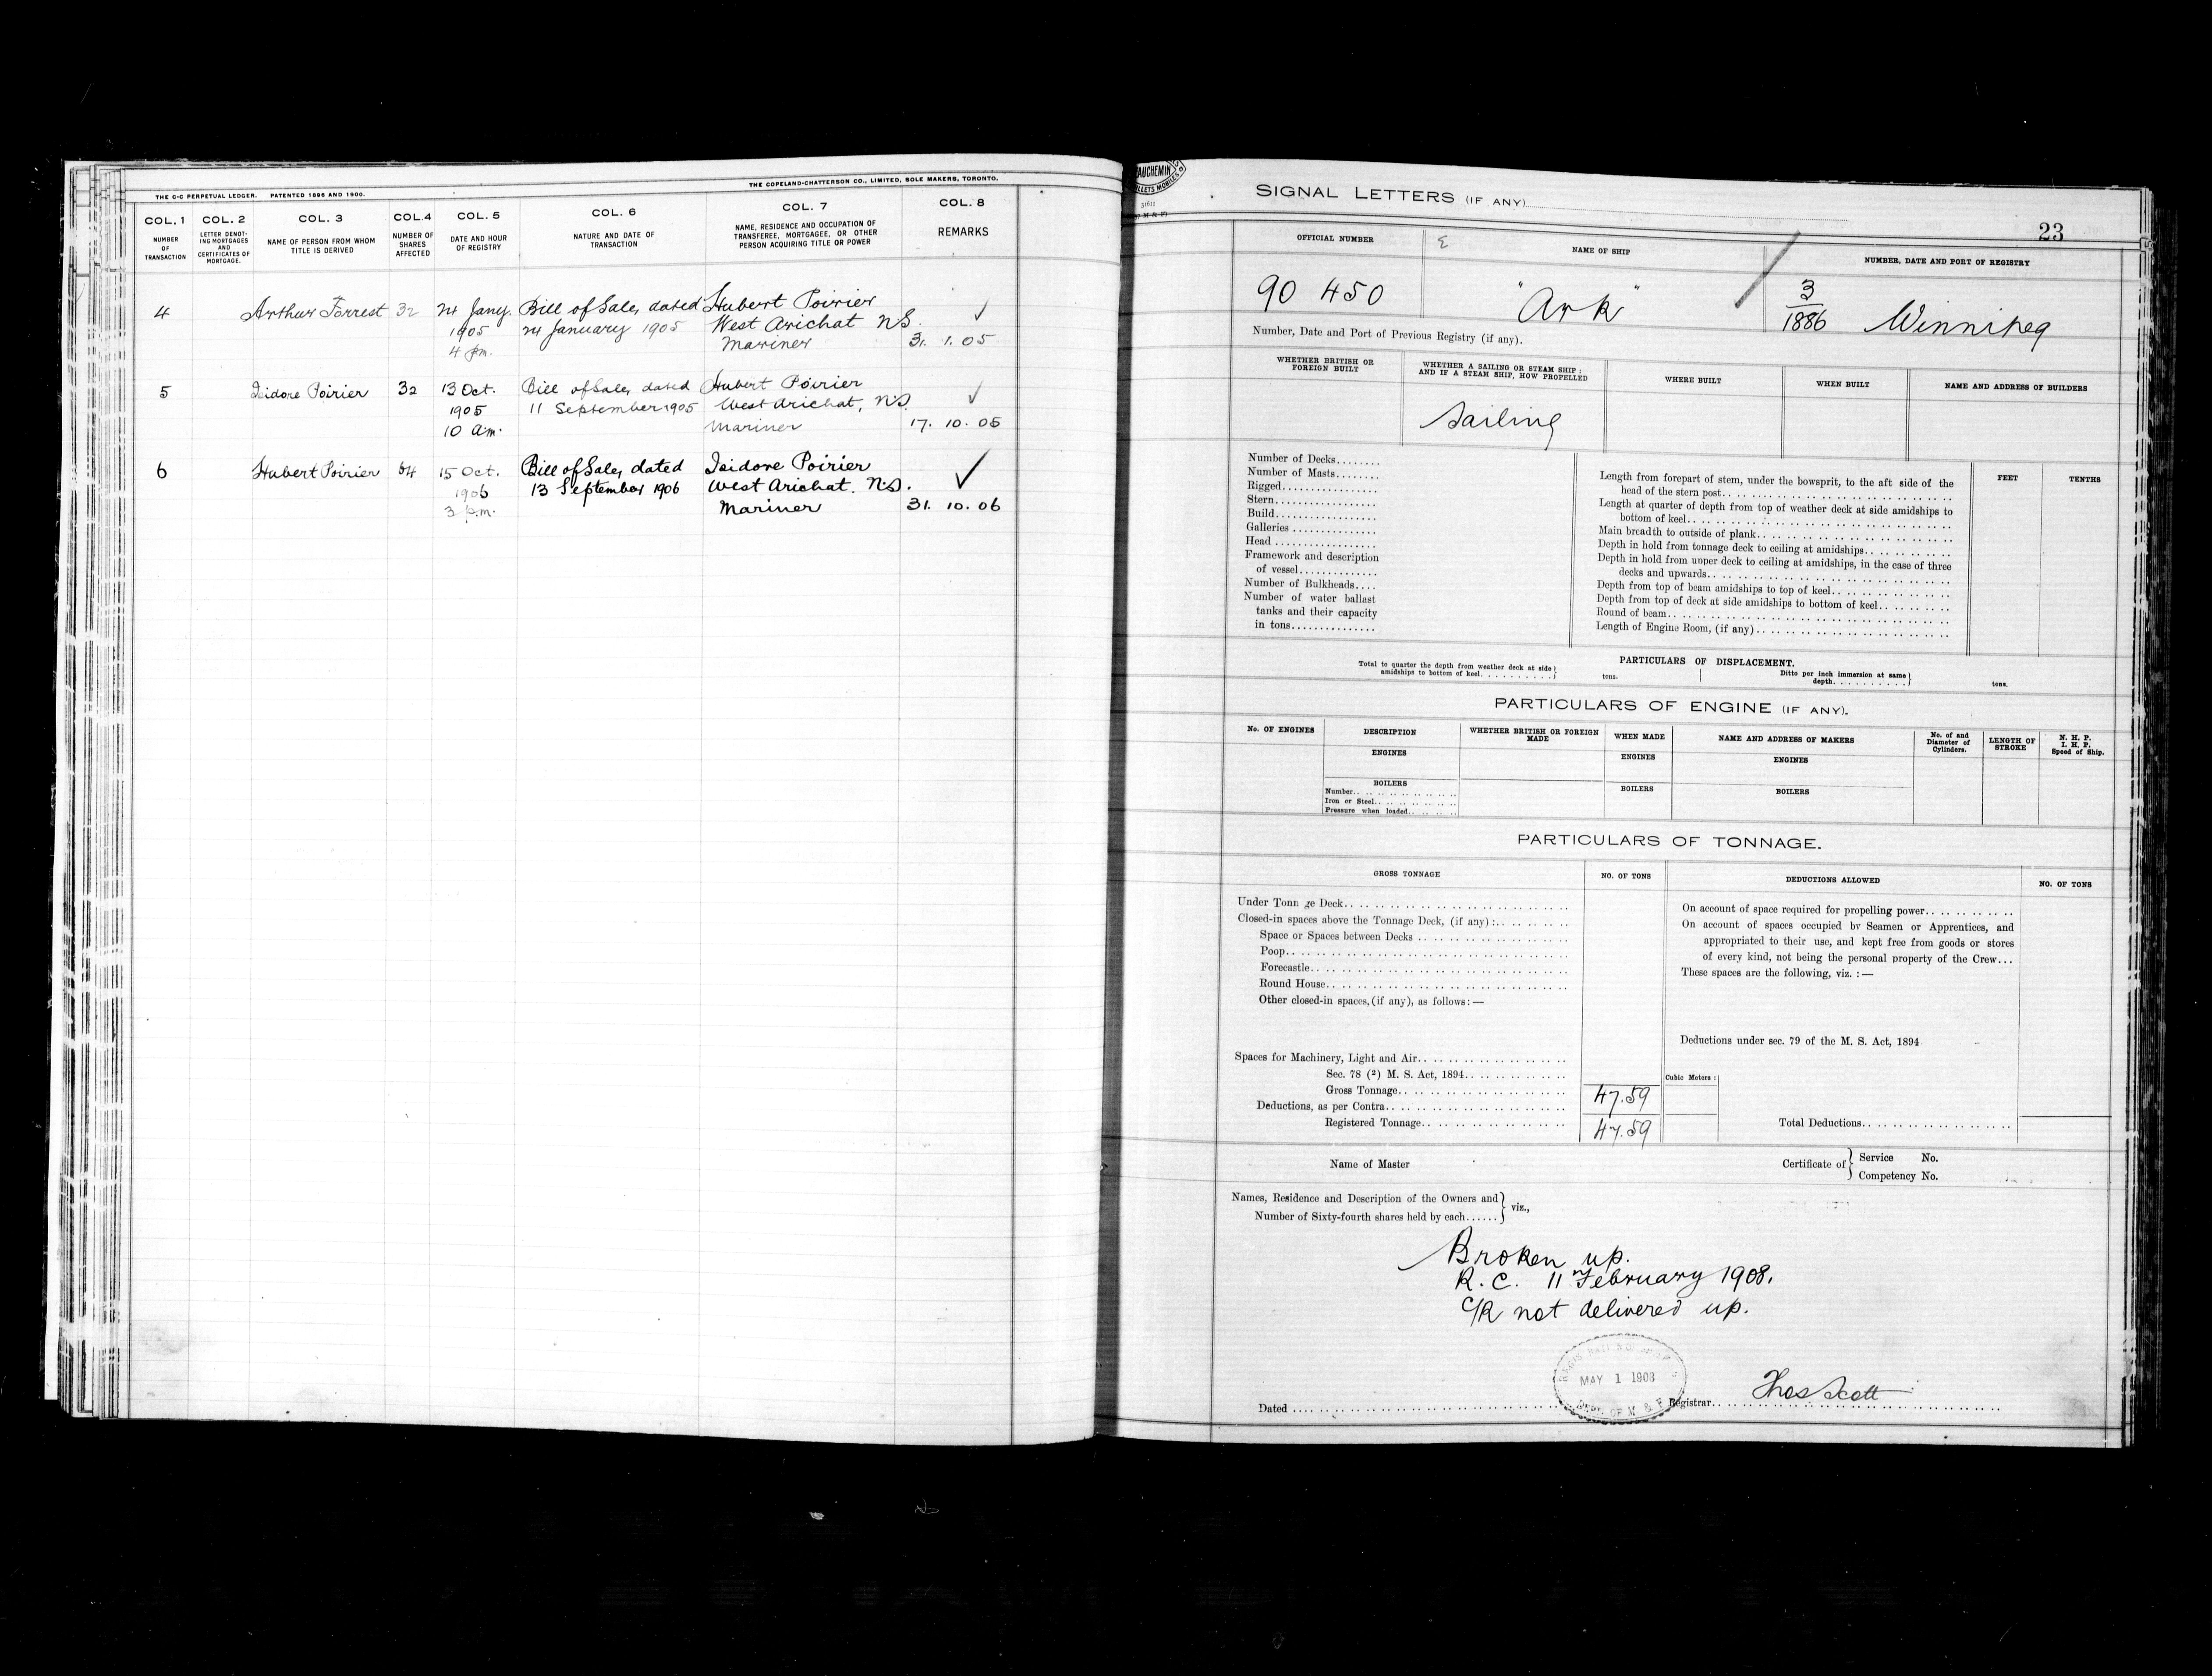 THE C-C PERPETUAL LEDGER. PATENTED 1896 AND 1900. THE COPELAND-CHATTERSON CO., LIMITED, SOLE MAKERS, TORONTO.
COL. 1 COL. 2 COL. 3 COL. 4 COL. 5 COL. 6 COL. 7 COL. 8
NUMBER OF TRANSACTION
LETTER DENOT-ING MORTGAGES AND CERTIFICATES OF MORTGAGE.
NAME OF PERSON FROM WHOM TITLE IS DERIVED
NUMBER OF SHARES AFFECTED
DATE AND HOUR OF REGISTRY
NATURE AND DATE OF TRANSACTION
NAME, RESIDENCE AND OCCUPATION OF TRANSFEREE, MORTGAGEE, OR OTHER PERSON ACQUIRING TITLE OR POWER
REMARKS
4 Arthur Forrest 32 24 Jany. Bill of Sale, dated Hubert Poirier ✓
1905 24 January 1905 West Arichat N.S.
4 p.m. Mariner 31. 1. 05
5 Isidore Poirier 32 13 Oct. Bill of Sale, dated Hubert Poirier ✓
1905 11 September 1905 West Arichat, N.S.
10 a.m. Mariner 17. 10. 05
6 Hubert Poirier 64 15 Oct. Bill of Sale, dated Isidore Poirier ✓
1906 13 September 1906 West Arichat. N.S.
3 p.m. Mariner 31. 10. 06
SIGNAL LETTERS (IF ANY)
23
OFFICIAL NUMBER NAME OF SHIP NUMBER, DATE AND PORT OF REGISTRY
90 450 "Ark" 3/1886 Winnipeg
Number, Date and Port of Previous Registry (if any).
WHETHER BRITISH OR FOREIGN BUILT
WHETHER A SAILING OR STEAM SHIP; AND IF A STEAM SHIP, HOW PROPELLED
WHERE BUILT
WHEN BUILT
NAME AND ADDRESS OF BUILDERS
Sailing
Number of Decks........
Number of Masts.......
Rigged....................
Stern......................
Build......................
Galleries.................
Head......................
Framework and description
of vessel..............
Number of Bulkheads....
Number of water ballast
tanks and their capacity
in tons...............
FEET TENTHS
Length from forepart of stem, under the bowsprit, to the aft side of the
head of the stern post..
Length at quarter of depth from top of weather deck at side amidships to
bottom of keel..
Main breadth to outside of plank..
Depth in hold from tonnage deck to ceiling at amidships..
Depth in hold from upper deck to ceiling at amidships, in the case of three
decks and upwards..
Depth from top of beam amidships to top of keel..
Depth from top of deck at side amidships to bottom of keel..
Round of beam..
Length of Engine Room, (if any)..
PARTICULARS OF DISPLACEMENT.
Total to quarter the depth from weather deck at side
amidships to bottom of keel.......... tons.
Ditto per inch immersion at same
depth.......... tons.
PARTICULARS OF ENGINE (IF ANY).
No. OF ENGINES
DESCRIPTION
WHETHER BRITISH OR FOREIGN MADE
WHEN MADE
NAME AND ADDRESS OF MAKERS
No. of and Diameter of Cylinders.
LENGTH OF STROKE
N. H. P. I. H. P. Speed of Ship.
ENGINES ENGINES ENGINES
BOILERS BOILERS BOILERS
Number..
Iron or Steel..
Pressure when loaded..
PARTICULARS OF TONNAGE.
GROSS TONNAGE NO. OF TONS DEDUCTIONS ALLOWED NO. OF TONS
Under Tonn ge Deck..
Closed-in spaces above the Tonnage Deck, (if any):..
Space or Spaces between Decks ..
Poop..
Forecastle..
Round House..
Other closed-in spaces, (if any), as follows:—
Spaces for Machinery, Light and Air..
Sec. 78 (2) M. S. Act, 1894..
Gross Tonnage.. 47.59
Deductions, as per Contra..
Registered Tonnage.. 47.59
Cubic Meters:
On account of space required for propelling power..
On account of spaces occupied by Seamen or Apprentices, and
appropriated to their use, and kept free from goods or stores
of every kind, not being the personal property of the Crew...
These spaces are the following, viz. :—
Deductions under sec. 79 of the M. S. Act, 1894
Total Deductions..
Name of Master
Certificate of Service No.
Competency No.
Names, Residence and Description of the Owners and
Number of Sixty-fourth shares held by each...... viz.,
Broken up.
R.C. 11th February 1908.
C/R not delivered up.
MAY 1 1908
DEPT. OF M & F
Dated
Registrar Thos Scott